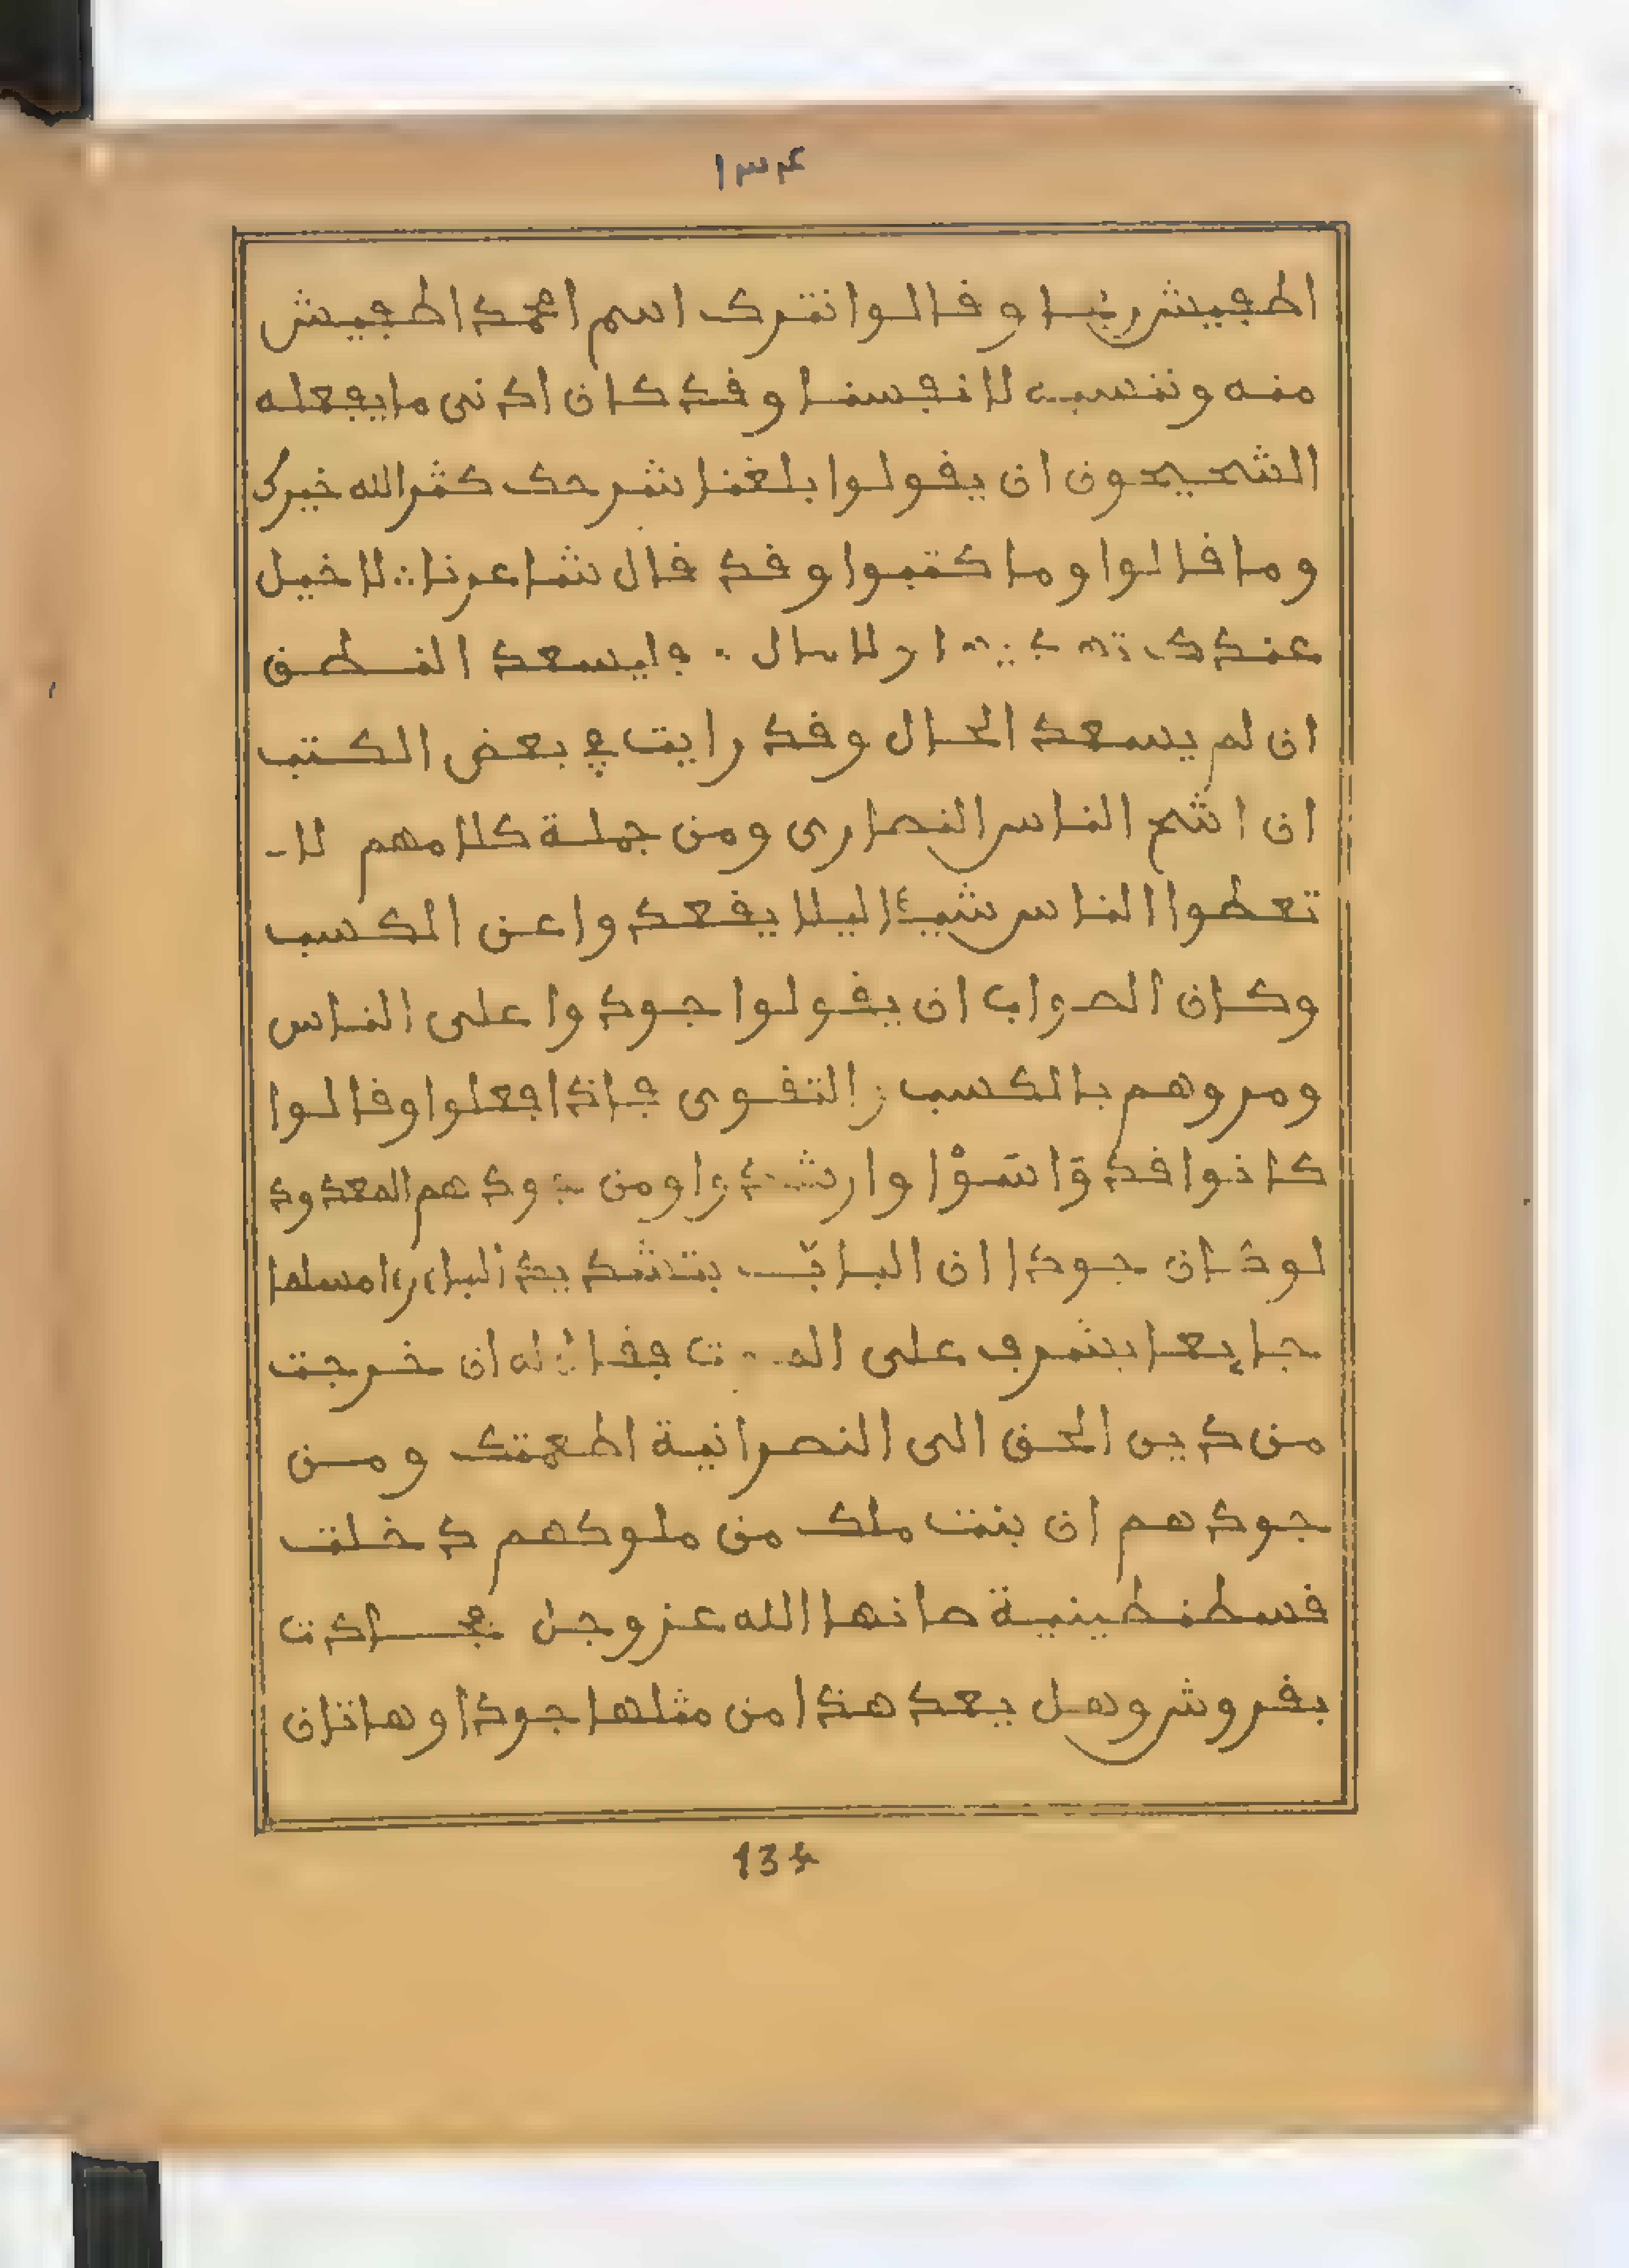 ١٣٤
اطفيش ربنا وقالوا نترك اسم امحمد اطفيش
منه وننسبه لانفسنا وقد كان ادنى ما يفعله
الشحيحون ان يقولوا بلغنا شرحك كثر الله خيرك
وما قالوا وما كتبوا وقد قال شاعرنا ∴ لا خيل
عندك تهديها ولا مال ∴ فليسعد النطق
ان لم يسعد الحال وقد رايت في بعض الكتب
ان اشح الناس النصارى ومن جملة كلامهم لا
تعطوا الناس شيئا ليلا يقعدوا عن الكسب
وكان الصواب ان يقولوا جودوا على الناس
ومروهم بالكسب والتقوى فاذا فعلوا وقالوا
كانوا قد وَاسَوْا وارشدوا ومن جودهم المعدود
لو كان جودا ان البابّ بتشديد الباء راا مسلما
جايعا يشرف على الموت فقال له ان خرجت
من دين الحق الى النصرانية اطعمتك ومن
جودهم ان بنت ملك من ملوكهم دخلت
قسطنطينية صانها الله عز وجل فجادت
بقروش وهل بعد هذا من مثلها جودا وهاتان
134